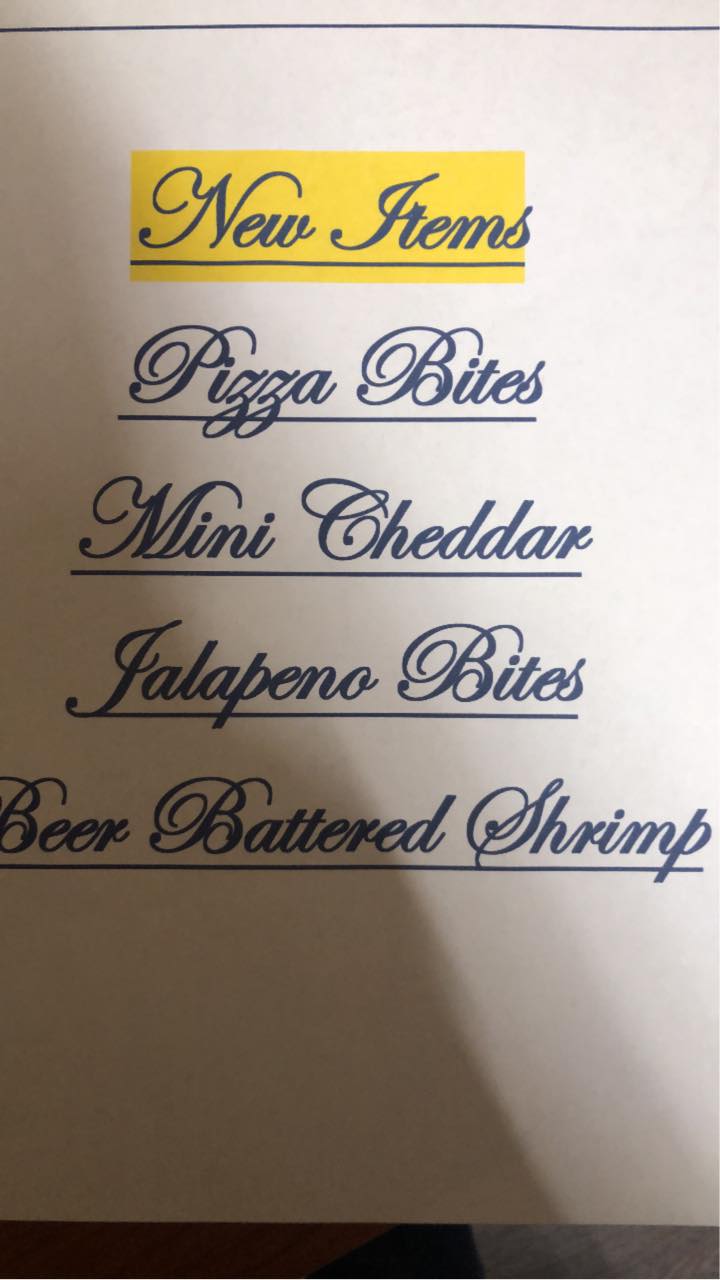 New Items
Pizza Bites
Mini Cheddar
Jalapeno Bites
Beer Battered Shrimp